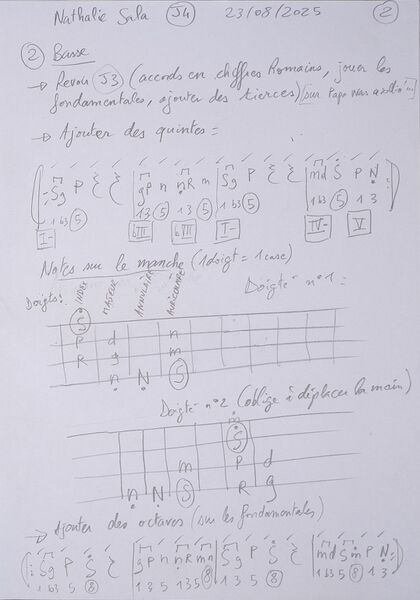 Nathalie Sala J4 23/08/2025 2
2 Basse
→ Revoir J3 (accords en chiffres Romains, jouer les
fondamentales, ajouter des tierces) sur Papa was a roll
→ Ajouter des quintes =
Sg P gP n nR m Sg P md S P N
1 b3 5 1 3 5 1 3 5 1 b3 5 1 b3 5 1 3
I- bIII bVII I- IV- V
Notes sur le manche (1 doigt = 1 case)
Doigts: INDEX MAJEUR ANNULAIRE AURICULAIRE Doigté n°1 =
S
P d n
R g m
n N S
Doigté n°2 (oblige à déplacer la main)
m
S
m P d
n N S R g
→ Ajouter des octaves (sur les fondamentales)
Sg P S gP n nR m n Sg P S md S m P N
1 b3 5 8 1 3 5 1 3 5 8 1 b3 5 8 1 b3 5 8 1 3